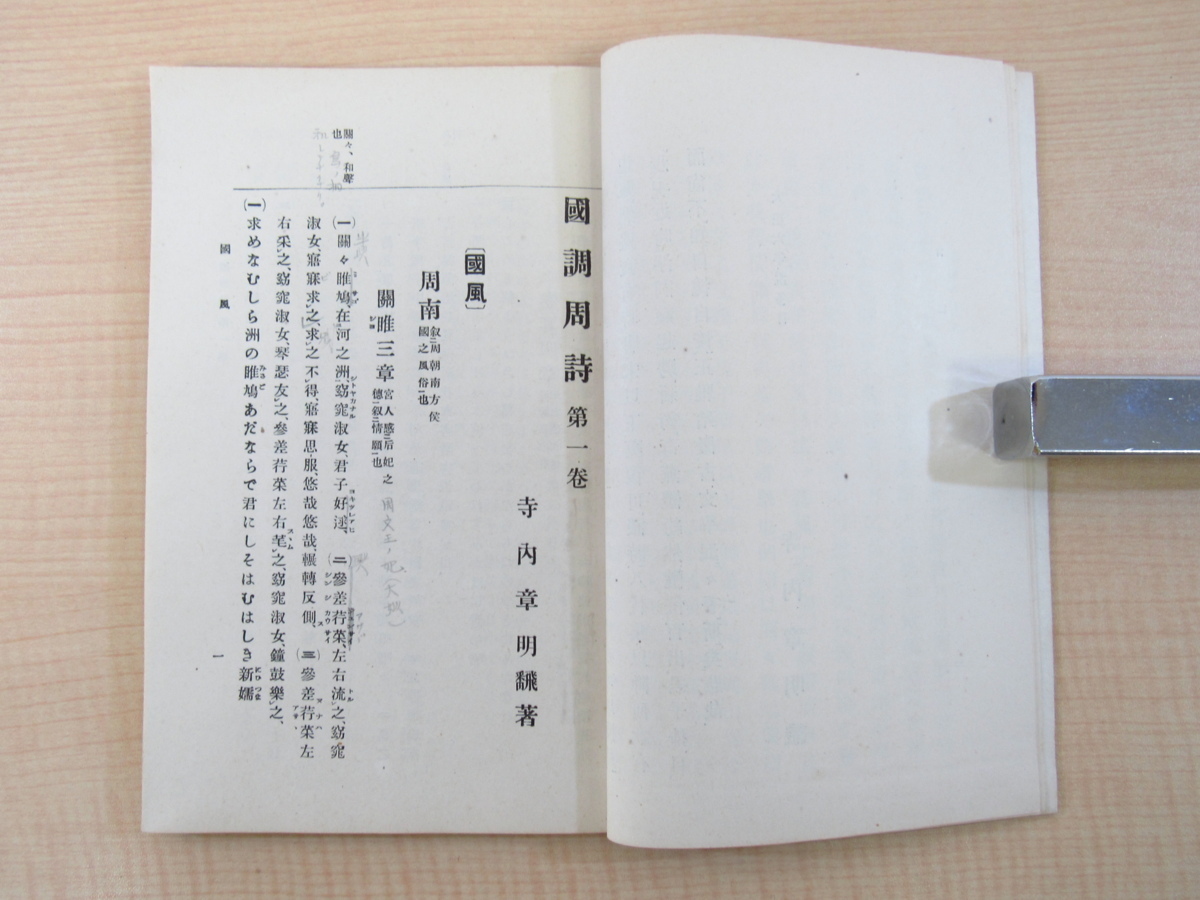 國調周詩 第一卷
寺內章明飜著
〔國風〕
周南 叙周朝南方侯國之風俗也
關雎三章 宮人感后妃之德叙情願也
周文王ノ妃
關々、和聲也
(一)關々雎鳩、在河之洲、窈窕淑女、君子好逑、(二)參差荇菜、左右流之、窈窕
淑女、寤寐求之、求之不得、寤寐思服、悠哉悠哉、輾轉反側、(三)參差荇菜左
右采之、窈窕淑女、琴瑟友之、參差荇菜左右芼之、窈窕淑女、鐘鼓樂之、
(一)求めなむしら洲の雎鳩あだならで君にしそはむはしき新孀
國風
一